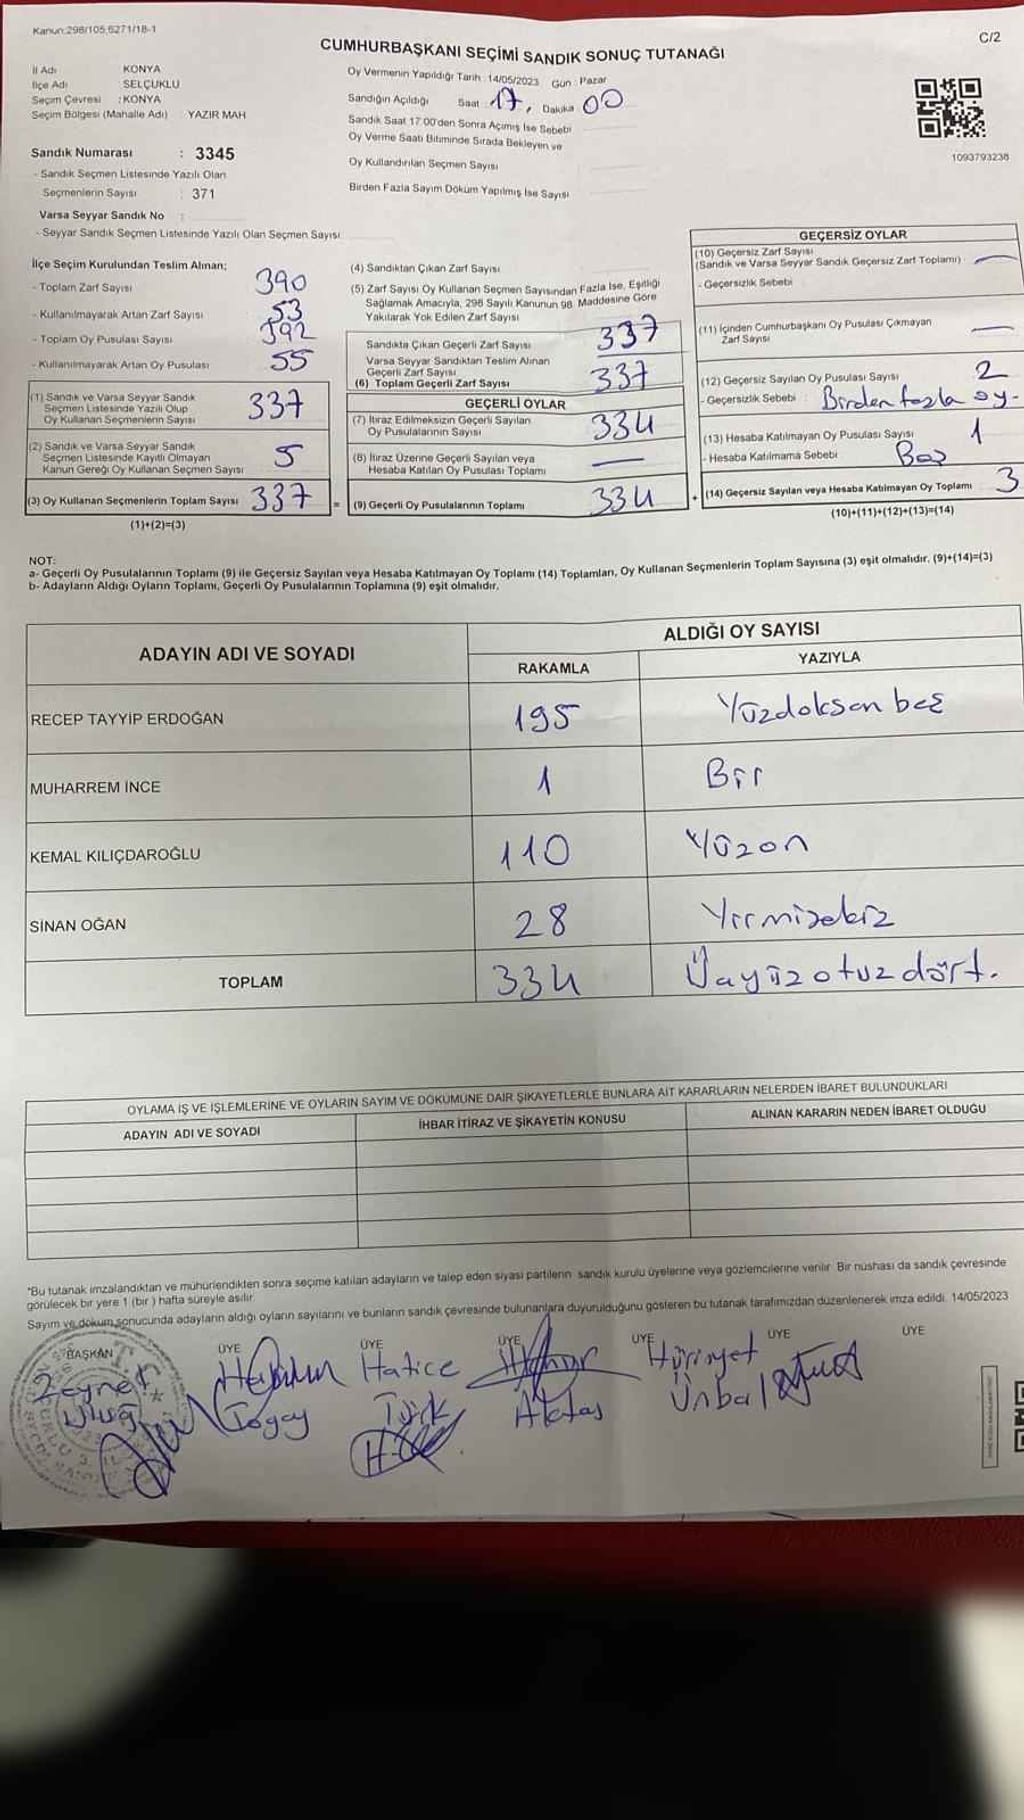 Kanun:298/105,6271/18-1
C/2
CUMHURBAŞKANI SEÇİMİ SANDIK SONUÇ TUTANAĞI
İl Adı KONYA
İlçe Adı SELÇUKLU
Seçim Çevresi : KONYA
Seçim Bölgesi (Mahalle Adı) YAZIR MAH
Sandık Numarası : 3345
- Sandık Seçmen Listesinde Yazılı Olan
Seçmenlerin Sayısı : 371
Varsa Seyyar Sandık No :
- Seyyar Sandık Seçmen Listesinde Yazılı Olan Seçmen Sayısı
Oy Vermenin Yapıldığı Tarih : 14/05/2023 Gün : Pazar
Sandığın Açıldığı Saat : 17, Dakika 00
Sandık Saat 17:00'den Sonra Açımış İse Sebebi
Oy Verme Saati Bitiminde Sırada Bekleyen ve
Oy Kullandırılan Seçmen Sayısı
Birden Fazla Sayım Döküm Yapılmış İse Sayısı
1093793238
İlçe Seçim Kurulundan Teslim Alınan;
- Toplam Zarf Sayısı 390
- Kullanılmayarak Artan Zarf Sayısı 53
- Toplam Oy Pusulası Sayısı 392
- Kullanılmayarak Artan Oy Pusulası 55
(1) Sandık ve Varsa Seyyar Sandık
Seçmen Listesinde Yazılı Olup
Oy Kullanan Seçmenlerin Sayısı 337
(2) Sandık ve Varsa Seyyar Sandık
Seçmen Listesinde Kayıtlı Olmayan
Kanun Gereği Oy Kullanan Seçmen Sayısı 5
(3) Oy Kullanan Seçmenlerin Toplam Sayısı 337 =
(1)+(2)=(3)
(4) Sandıktan Çıkan Zarf Sayısı
(5) Zarf Sayısı Oy Kullanan Seçmen Sayısından Fazla İse, Eşitliği
Sağlamak Amacıyla, 298 Sayılı Kanunun 98. Maddesine Göre
Yakılarak Yok Edilen Zarf Sayısı
Sandıkta Çıkan Geçerli Zarf Sayısı 337
Varsa Seyyar Sandıktan Teslim Alınan
Geçerli Zarf Sayısı
(6) Toplam Geçerli Zarf Sayısı 337
GEÇERLİ OYLAR
(7) İtiraz Edilmeksizin Geçerli Sayılan
Oy Pusulalarının Sayısı 334
(8) İtiraz Üzerine Geçerli Sayılan veya
Hesaba Katılan Oy Pusulası Toplamı —
(9) Geçerli Oy Pusulalarının Toplamı 334 +
GEÇERSİZ OYLAR
(10) Geçersiz Zarf Sayısı
(Sandık ve Varsa Seyyar Sandık Geçersiz Zarf Toplamı) —
- Geçersizlik Sebebi
(11) İçinden Cumhurbaşkanı Oy Pusulası Çıkmayan
Zarf Sayısı —
(12) Geçersiz Sayılan Oy Pusulası Sayısı 2
- Geçersizlik Sebebi : Birden fazla oy.
(13) Hesaba Katılmayan Oy Pusulası Sayısı 1
- Hesaba Katılmama Sebebi Boş
(14) Geçersiz Sayılan veya Hesaba Katılmayan Oy Toplamı 3
(10)+(11)+(12)+(13)=(14)
NOT:
a- Geçerli Oy Pusulalarının Toplamı (9) ile Geçersiz Sayılan veya Hesaba Katılmayan Oy Toplamı (14) Toplamları, Oy Kullanan Seçmenlerin Toplam Sayısına (3) eşit olmalıdır. (9)+(14)=(3)
b- Adayların Aldığı Oyların Toplamı, Geçerli Oy Pusulalarının Toplamına (9) eşit olmalıdır.
ADAYIN ADI VE SOYADI
ALDIĞI OY SAYISI
RAKAMLA YAZIYLA
RECEP TAYYİP ERDOĞAN 195 Yüzdoksan beş
MUHARREM İNCE 1 Bir
KEMAL KILIÇDAROĞLU 110 Yüzon
SİNAN OĞAN 28 Yirmisekiz
TOPLAM 334 Üçyüzotuzdört.
OYLAMA İŞ VE İŞLEMLERİNE VE OYLARIN SAYIM VE DÖKÜMÜNE DAİR ŞİKAYETLERLE BUNLARA AİT KARARLARIN NELERDEN İBARET BULUNDUKLARI
ADAYIN ADI VE SOYADI İHBAR İTİRAZ VE ŞİKAYETİN KONUSU ALINAN KARARIN NEDEN İBARET OLDUĞU
*Bu tutanak imzalandıktan ve mühürlendikten sonra seçime katılan adayların ve talep eden siyasi partilerin sandık kurulu üyelerine veya gözlemcilerine verilir. Bir nüshası da sandık çevresinde
görülecek bir yere 1 (bir ) hafta süreyle asılır.
Sayım ve döküm sonucunda adayların aldığı oyların sayılarını ve bunların sandık çevresinde bulunanlara duyurulduğunu gösteren bu tutanak tarafımızdan düzenlenerek imza edildi. 14/05/2023
BAŞKAN ÜYE ÜYE ÜYE ÜYE ÜYE ÜYE
Zeynep Hatice Hürriyet
Uluğ Togay Türk Aktaş Ünbal